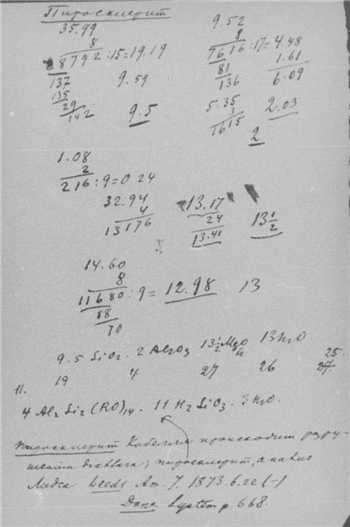 Пиросклерит
35.99
8
28792:15=19.19
137
135
29
142
9.59
9.5
9.52
8
7616:17=4.48
81
136
1.61
6.09
5.35
3
1615
2.03
2
1.08
2
216:9=0.24
32.94
4
13176
13.17
24
13.41
13½
14.60
8
11680:9=12.98 13
88
70
9.5 SiO₂ 2 Al₂O₃ 13½MgO 13H₂O
19 4 27 26 25
27
11.
4 Al₂Si₂(RO)₁₄. 11 H₂SiO₃. 3H₂O.
Пиросклерит Кобелля происходит
пиросклерит, анализ
Лидса Leeds Am. J. 1873.6.22 (-)
Dana System p 668.